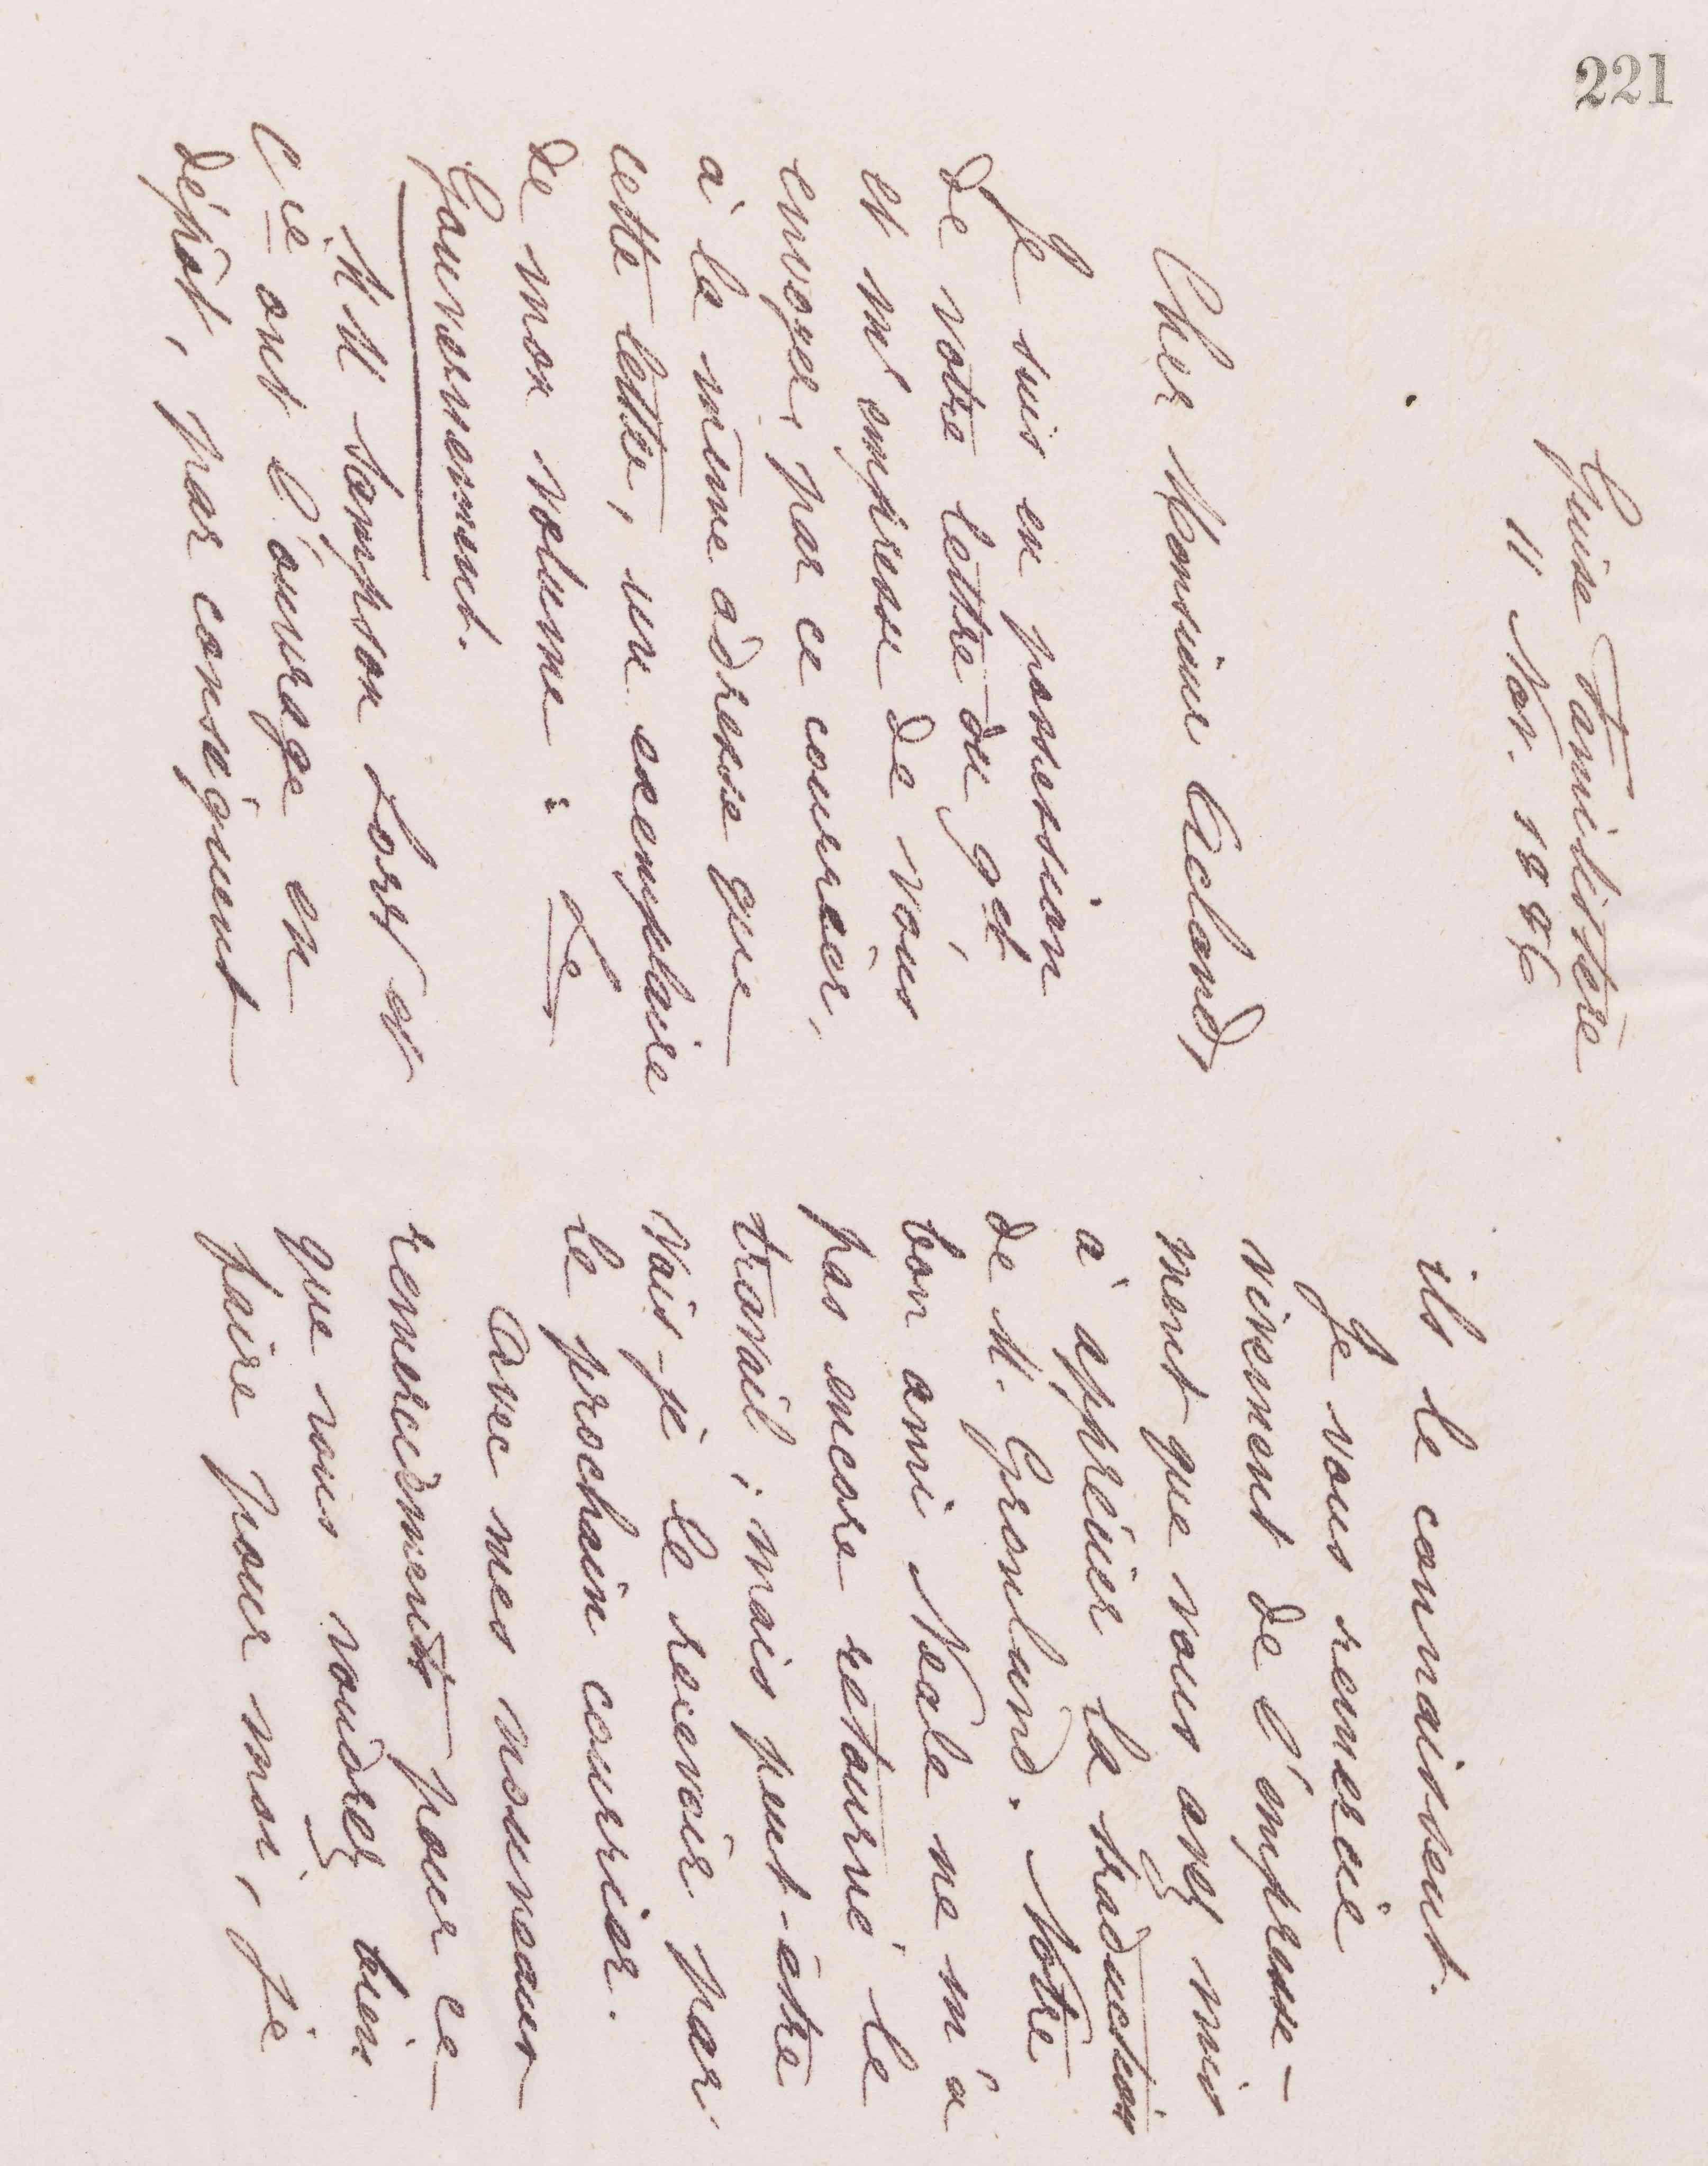 221
Guise Familistère
11 Nov. 1886
Cher Monsieur Acland,
Je suis en possession
de votre lettre du 9 ct,
et m'empresse de vous
envoyer, par ce courrier,
à la même adresse que
cette lettre, un exemplaire
de mon volume : Le
Gouvernement.
MM Sampson Low et
Cie ont l'ouvrage en
dépôt, par conséquent
ils le connaissent.
Je vous remercie
vivement de l'empresse-
ment que vous avez mis
à apprécier la traduction
de M. Gronlund. Notre
bon ami Neale ne m'a
pas encore retourné le
travail ; mais peut-être
vais-je le recevoir par
le prochain courrier.
Avec mes nouveaux
remerciements pour ce
que vous voudrez bien
faire pour moi, je